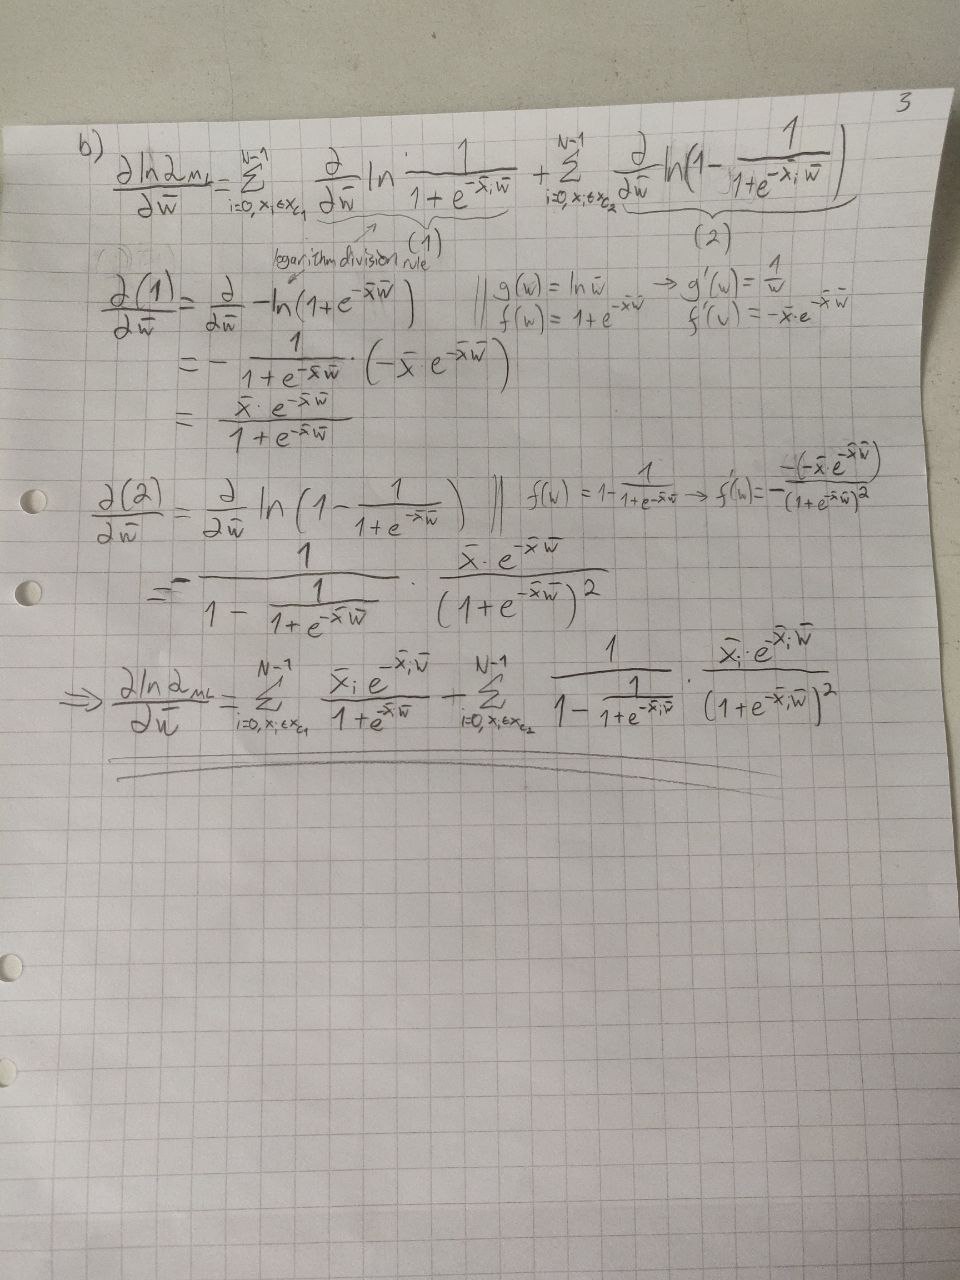 3
b) ∂ln𝓛_ML/∂w̄ = Σ_{i=0, x_i∈x_{c1}}^{N-1} ∂/∂w̄ ln 1/(1+e^{-x̄_i w̄}) + Σ_{i=0, x_i∈x_{c2}}^{N-1} ∂/∂w̄ ln(1 - 1/(1+e^{-x̄_i w̄}))
(1) (2)
logarithm division rule
∂(1)/∂w̄ = ∂/∂w̄ -ln(1+e^{-x̄w̄}) || g(w) = ln w̄ → g'(w) = 1/w̄
f(w) = 1+e^{-x̄w̄} f'(w) = -x̄·e^{-x̄w̄}
= - 1/(1+e^{-x̄w̄}) · (-x̄·e^{-x̄w̄})
= x̄·e^{-x̄w̄}/(1+e^{-x̄w̄})
∂(2)/∂w̄ = ∂/∂w̄ ln(1 - 1/(1+e^{-x̄w̄})) || f(w) = 1 - 1/(1+e^{-x̄w̄}) → f'(w) = - -(-x̄·e^{-x̄w̄})/(1+e^{-x̄w̄})²
= - 1/(1 - 1/(1+e^{-x̄w̄})) · x̄·e^{-x̄w̄}/(1+e^{-x̄w̄})²
⇒ ∂ln𝓛_ML/∂w̄ = Σ_{i=0, x_i∈x_{c1}}^{N-1} x̄_i e^{-x̄_i w̄}/(1+e^{-x̄w̄}) - Σ_{i=0, x_i∈x_{c2}}^{N-1} 1/(1 - 1/(1+e^{-x̄_i w̄})) · x̄_i·e^{-x̄_i w̄}/(1+e^{-x̄_i w̄})²